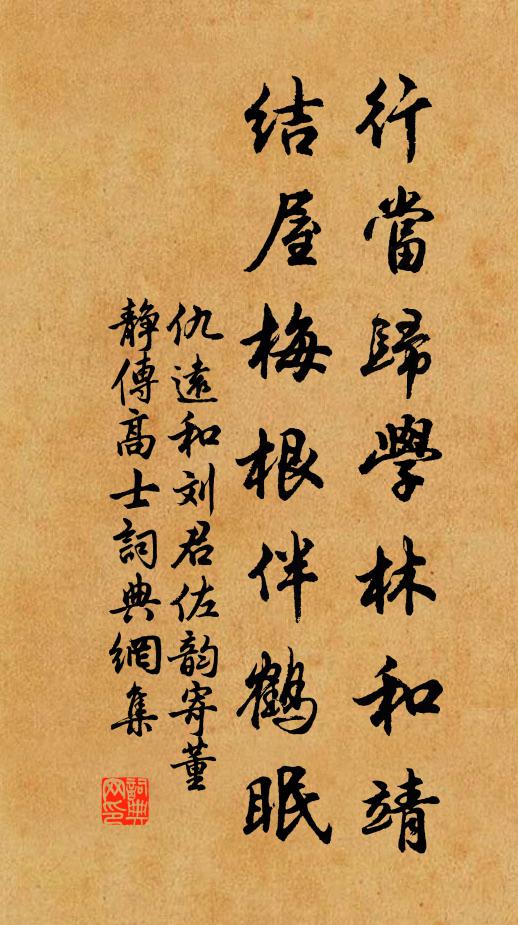 行當歸學林和靖
結屋梅根伴鶴眠
仇遠和刘君佐韵寄董
静傳高士詞典網集
詞典网印